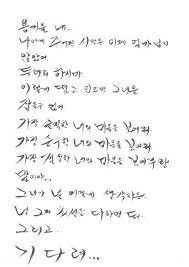 용기를 내..
나에게 주어진 시간은 이제 얼마 남지
않았어.
두려워 하지마
이렇게 떨고 있으면 그녀를
잡을수 없어
가장 솔직한 너의 마음을 보여줘
가장 순수한 너의 마음을 보여줘
가장 진실한 너의 마음을 보여주란
말이야...
그녀가 날 어떻게 생각하든
넌 그저 최선을 다하면 돼..
그리고..
기다려...